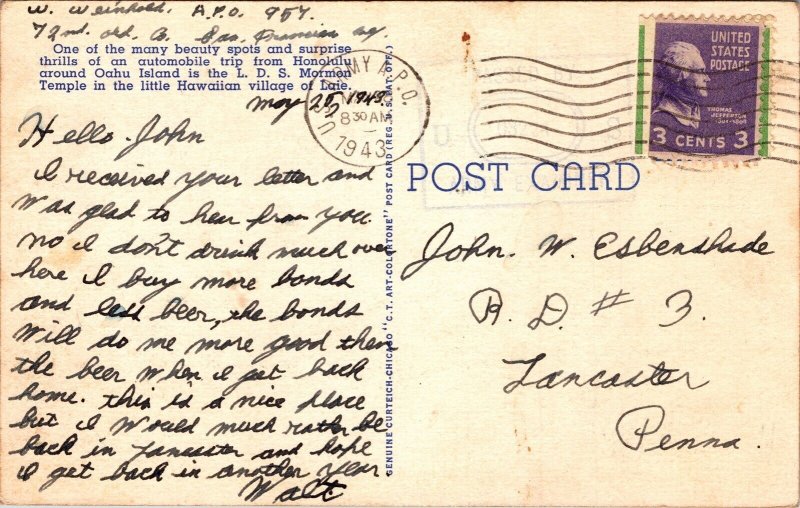 W. Weinhold. A.P.O. 957.
72nd. ord. Co. San. Francisco
One of the many beauty spots and surprise
thrills of an automobile trip from Honolulu
around Oahu Island is the L. D. S. Mormon
Temple in the little Hawaiian village of Laie.
May 25, 1943.
Hello. John
I received your letter and
was glad to hear from you.
no I don't drink much over
here I buy more bonds
and less beer, the bonds
will do me more good then
the beer when I get back
home. this is a nice place
but I would much rather be
back in Lancaster and hope
I get back in another year
Walt
GENUINE CURTEICH-CHICAGO "C.T. ART-COLORTONE" POST CARD (REG. U.S. PAT. OFF.)
U.S. ARMY A.P.O.
8 30 AM
1943
UNITED
STATES
POSTAGE
THOMAS
JEFFERSON
3 CENTS 3
POST CARD
John. W. Esbenshade
R. D. # 3.
Lancaster
Penna.